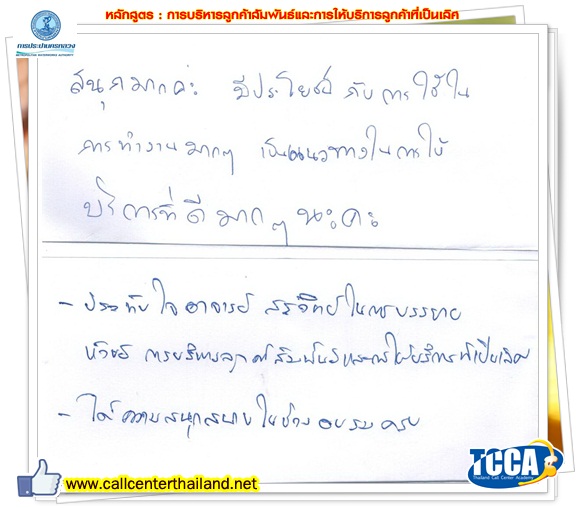 หลักสูตร : การบริหารลูกค้าสัมพันธ์และการให้บริการลูกค้าที่เป็นเลิศ
การประปานครหลวง
METROPOLITAN WATERWORKS AUTHORITY
สนุกมากค่ะ มีประโยชน์ กับการใช้ใน
การทำงานมากๆ เป็นแนวทางในการให้
บริการที่ดีมากๆ นะคะ
- ประทับใจอาจารย์ ในการบรรยาย
หัวข้อ การบริหารลูกค้าสัมพันธ์และการให้บริการที่เป็นเลิศ
- ได้ความสนุกสนานในช่วงอบรมครับ
www.callcenterthailand.net
TCCA
Thailand Call Center Academy